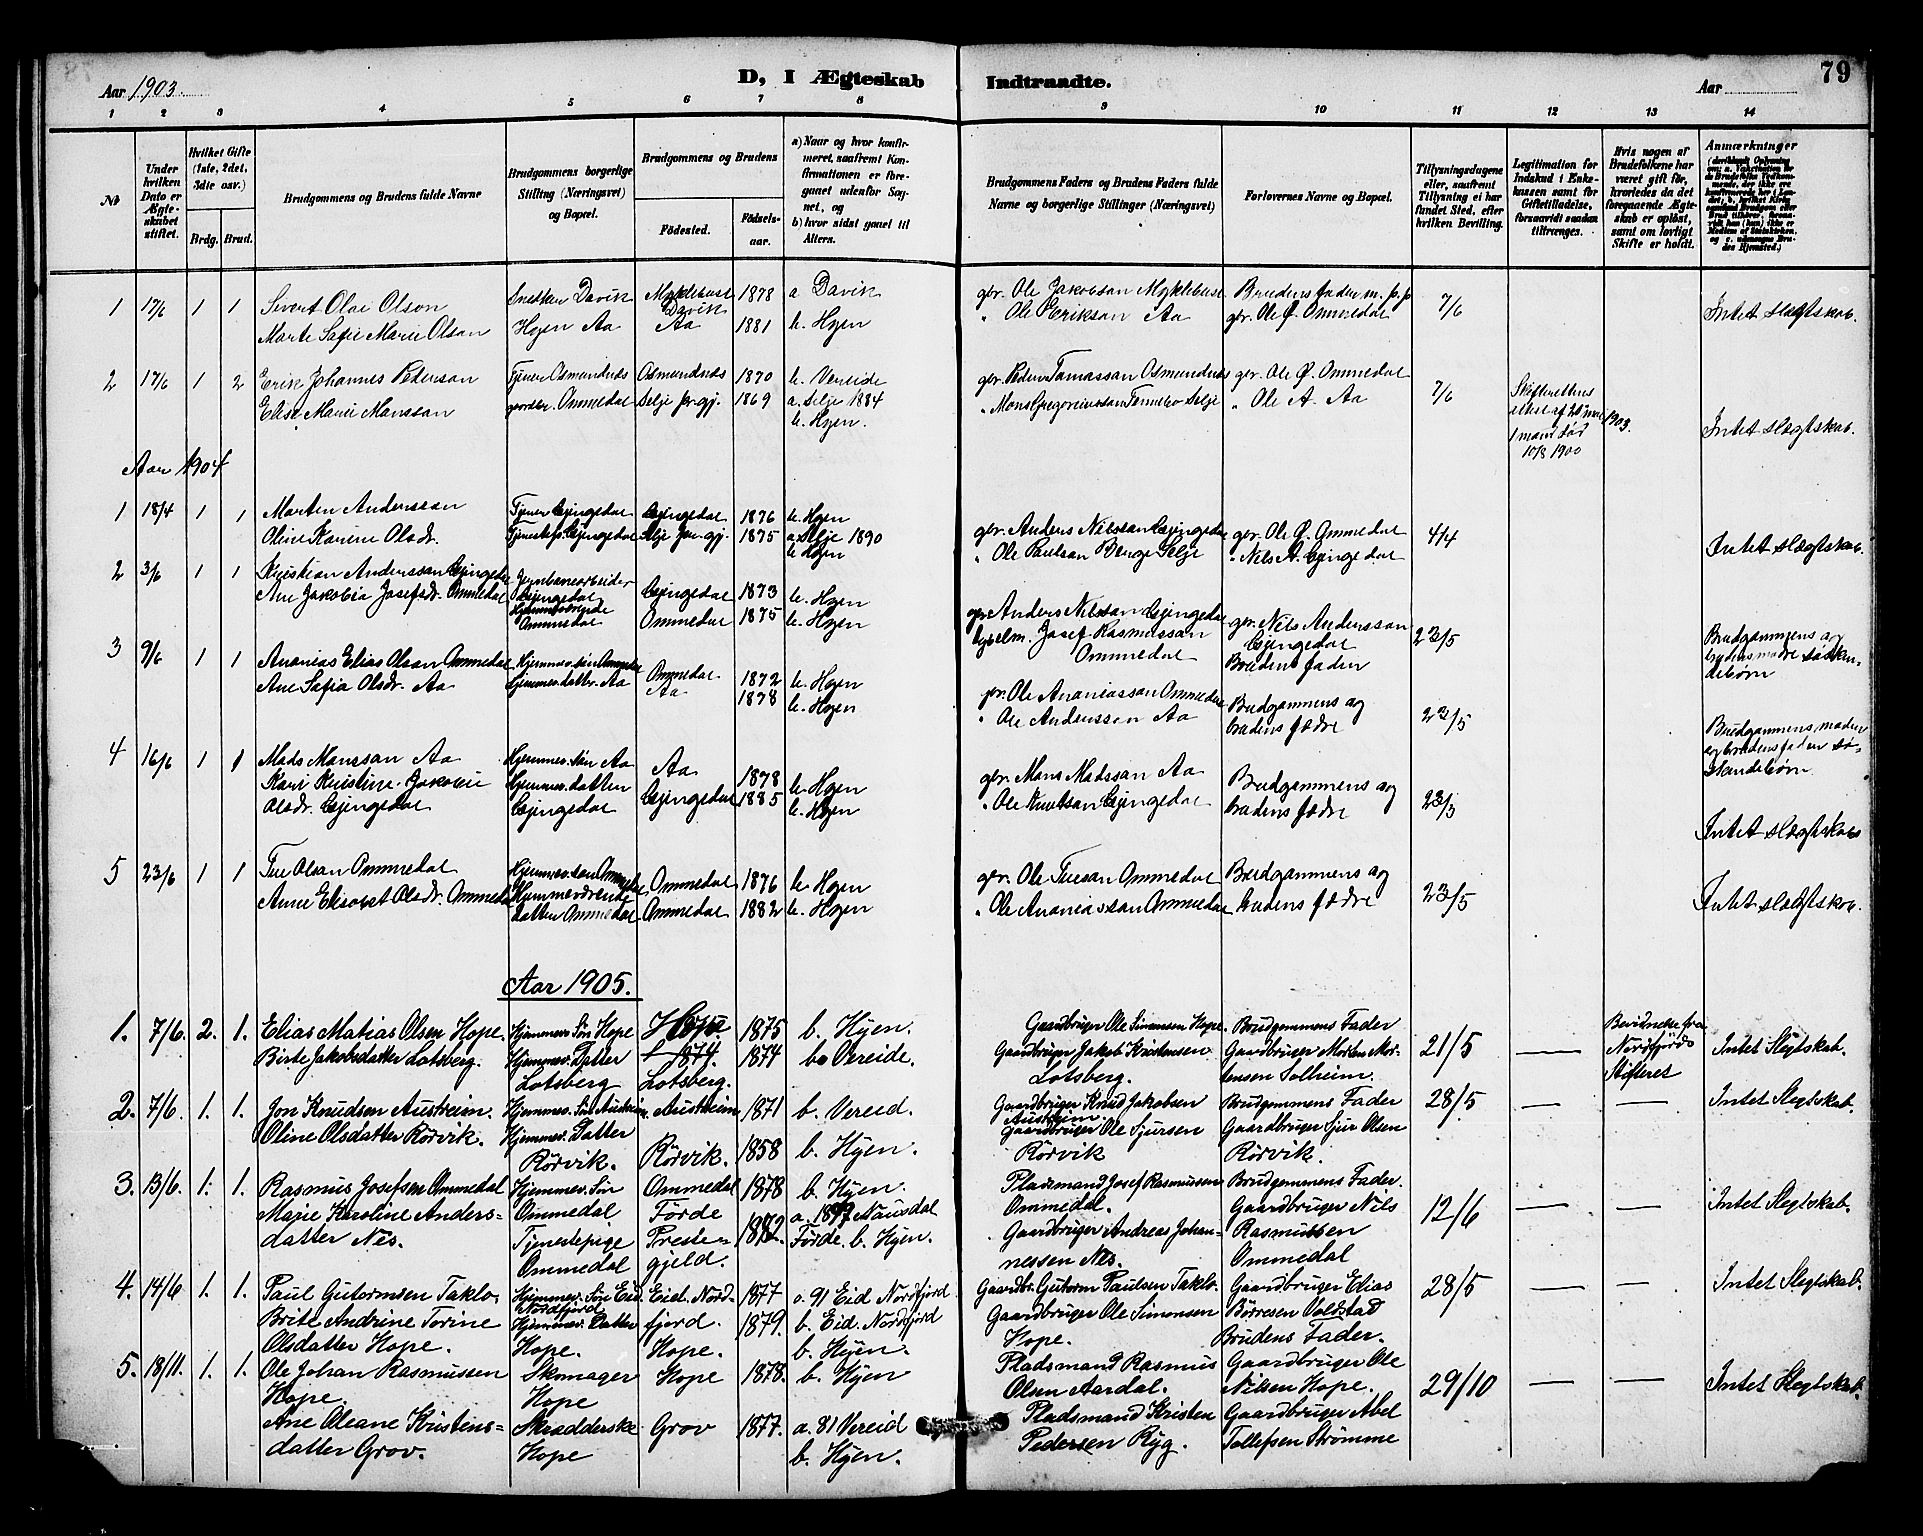 79
Aar 1903.
D, I Ægteskab Indtraadte.
Aar
1 2 3 4 5 6 7 8 9 10 11 12 13 14
No
Under hvilken Dato er Ægteskabet stiftet.
Hvilket Gifte (1ste, 2det, 3die osv.)
Brdg. Brud.
Brudgommens og Brudens fulde Navne
Brudgommens borgerlige Stilling (Næringsvei) og Bopæl.
Brudgommens og Brudens
Fødested.
Fødselsaar.
a) Naar og hvor konfirmeret, saafremt Konfirmationen er foregaaet udenfor Sognet, og
b) hvor sidst gaaet til Alters.
Brudgommens Faders og Brudens Faders fulde Navne og borgerlige Stillinger (Næringsvei)
Forlovernes Navne og Bopæl.
Tillysningsdagene eller, saafremt Tillysning ei har fundet Sted, efter hvilken Bevilling.
Legitimation for Indskud i Enkekassen samt for Giftetilladelse, forsaavidt saadan tiltrænges.
Hvis nogen af Brudefolkene har været gift før, hvorledes da det foregaaende Ægteskab er opløst, samt om lovligt Skifte er holdt.
Anmærkninger
1 17/6 1 1 Sivert Olai Olson Snedker Davik Myklebust Davik 1878 a Davik gbr. Ole Jakobson Myklebust Brudens fader m. p. p 7/6 Intet slægtskab.
Marte Sofie Marie Olson Hyen Aa Aa 1881 b. Hyen " Ole Erikson Aa gbr. Ole Ø. Ommedal
2 17/6 1 2 Erik Johannes Pederson Tjener Osmundnes Osmundnes 1870 b. Vereide gbr. Peder Tomasson Osmundnes gbr. Ole Ø. Ommedal 7/6
Elise Marie Monsson Ommedal Selje pr.gj. 1869 a. Selje 1884 " Mons Gregoriusson Selje " Ole A. Aa 1903. Intet slægtskab.
b. Hyen. 10/3 1900
Aar 1904
1 18/4 1 1 Morten Andersson Tjener Gjengedal Gjengedal 1876 b. Hyen gbr. Anders Nilsson Gjengedal gbr. Ole Ø. Ommedal 4/4 Intet slægtskab.
Oline Karine Olsdr. Gjengedal Selje pr.gj. 1875 a Selje 1890 " Ole Paulson Berge Selje " Nils A. Gjengedal
b Hyen
2 3/6 1 1 Kristian Andersson Gjengedal Jernbanearbeider Gjengedal Gjengedal 1873 b. Hyen gbr. Anders Nilsson Gjengedal gbr. Nils Andersson Gjengedal 23/5 Brudgommens og brudens mødre søskendebørn
Ane Jakobia Josefsdr. Ommedal Hjemmeværende Ommedal Ommedal 1875 b. Hyen Josef Rasmusson Ommedal Brudens fader
3 9/6 1 1 Ananias Elias Olson Ommedal Hjemmev. søn Ommedal Ommedal 1872 b. Hyen gbr. Ole Ananiasson Ommedal Brudgommens og brudens fædre 23/5 Brudgommens moder og brudens fader søskendebørn
Ane Sofia Olsdr. Aa Hjemmev. dattr. Aa Aa 1878 b. Hyen " Ole Andersson Aa
4 16/6 1 1 Mads Monsson Aa Hjemmev. søn Aa Aa 1878 b. Hyen gbr. Mons Madsson Aa Brudgommens og brudens fædre 23/5 Intet slægtskab
Kari Kristine Jakobie Olsdr. Gjengedal Hjemmev. datter Gjengedal Gjengedal 1885 b. Hyen " Ole Knutson Gjengedal
5 23/6 1 1 Tue Olson Ommedal Hjemmev. søn Ommedal Ommedal 1876 b. Hyen gbr. Ole Tueson Ommedal Brudgommens og brudens fædre 23/5 Intet slægtskab.
Anne Elisabet Olsdr. Ommedal Hjemmeværende datter Ommedal Ommedal 1882 b. Hyen " Ole Ananiasson Ommedal
Aar 1905.
1. 7/6. 2. 1. Elias Matias Olsen Hope. Hjemmev. Søn Hope Hope 1875 b. Hyen. Gaardbruger Ole Simonsen Hope. Brudgommens Fader 21/5 — Bevidnelse fra Nordfjords Skifteret Intet Slegtskab.
Birte Jakobsdatter Lotsberg. Hjemmev. Datter Lotsberg Lotsberg. 1874 b. Vereide. Gaardbruger Jakob Kristensen Lotsberg. Gaardbruger Morten Mortensen Solheim.
2. 7/6. 1. 1. Jon Knudsen Austreim. Hjemmev. Søn Austreim Austreim 1871 b. Vereid. Gaardbruger Knud Jakobsen Austreim Brudgommens Fader 28/5 — — Intet Slegtskab.
Oline Olsdatter Rörvik. Hjemmev. Datter Rörvik. Rörvik. 1858 b. Hyen. Gaardbruger Ole Sjursen Rörvik Gaardbruger Sjur Olsen Rörvik.
3. 13/6. 1. 1. Rasmus Josefsen Ommedal Hjemmev. Søn Ommedal Ommedal 1878 b. Hyen. Pladsmand Josef Rasmussen Ommedal. Brudgommens Fader. 12/6 — — Intet Slegtskab.
Majie Karoline Andersdatter Nes. Tjenestepige Ommedal Förde Prestegjeld. 1882. a. 1897 Nausdal Förde. b. Hyen. Gaardbruger Andreas Johannessen Nes. Gaardbruger Nils Rasmussen Ommedal
4. 14/6 1. 1. Paul Gutormsen Taklo. Hjemmev. Søn Eid Nordfjord Eid. Nordfjord. 1877 a. 91 Eid Nordfjord b. Eid. Nordfjord Gaardbr. Gutorm Paulsen Taklo. Gaardbruger Elias Börresen Voldstad 28/5 — — Intet Slegtskab.
Brite Andrine Torine Olsdatter Hope. Hjemmev. Datter Hope. Hope. 1879. b. Hyen. Gaardbruger Ole Simonsen Hope. Brudens Fader.
5. 18/11. 1. 1. Ole Johan Rasmussen Hope Skomager Hope Hope 1878. b. Hyen Pladsmand Rasmus Olsen Aardal. Gaardbruger Ole Nilsen Hope. 29/10 — — Intet Slegtskab.
Ane Oleane Kristensdatter Grov. Skradderske Hope Grov 1877. a. 81 Vereid b. Hyen. Pladsmand Kristen Pedersen Ryg. Gaardbruger Abel Tollefsen Strömme